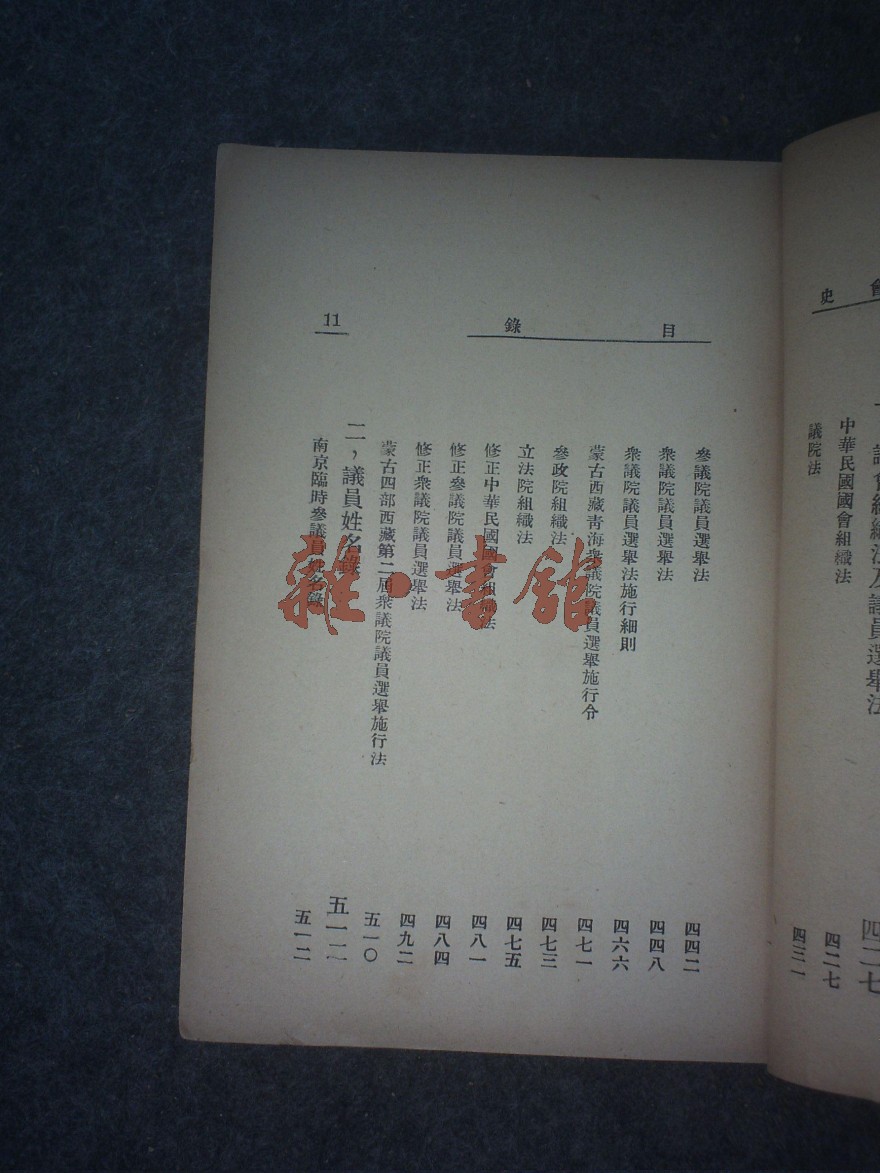 會史
議會組織法及議員選舉法 四二七
中華民國國會組織法 四二七
議院法 四三一
目錄
參議院議員選舉法 四四二
衆議院議員選舉法 四四八
衆議院議員選舉法施行細則 四六六
蒙古西藏靑海衆議院議員選舉施行令 四七一
參政院組織法 四七三
立法院組織法 四七五
修正中華民國國會組織法 四八一
修正參議院議員選舉法 四八四
修正衆議院議員選舉法 四九二
蒙古四部西藏第二屆衆議院議員選舉施行法 五一〇
二，議員姓名錄 五一二
南京臨時參議員姓名錄 五一二
11
雜·書館